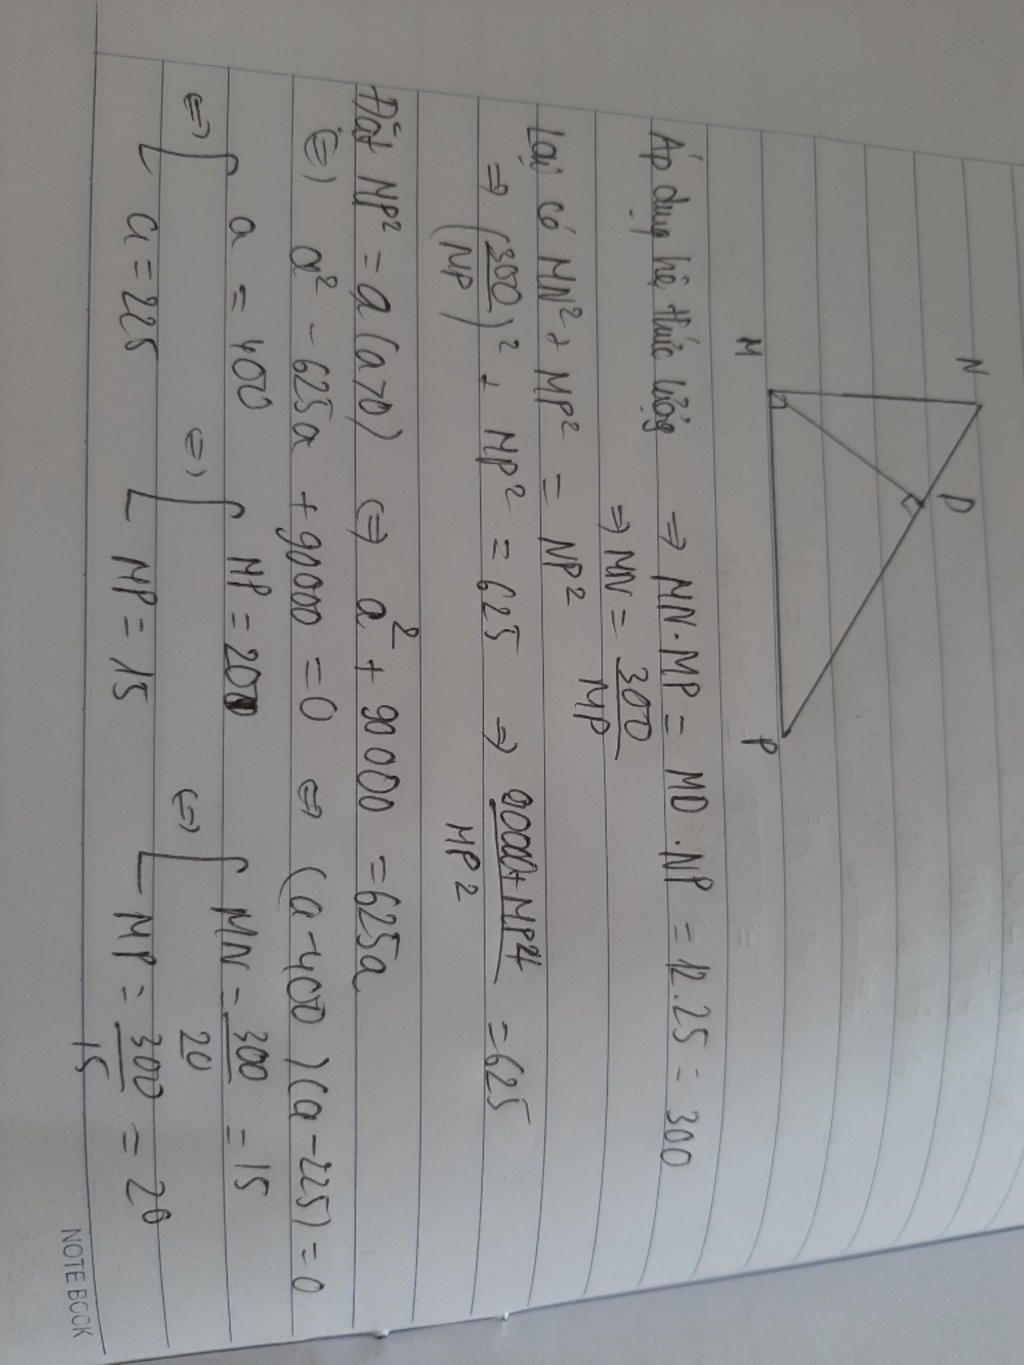 N
D
M
P
Áp dụng hệ thức lượng ⇒ MN.MP = MD.NP = 12.25 = 300
⇒ MN = 300/MP
Lại có MN² + MP² = NP²
⇒ (300/MP)² + MP² = 625 ⇒ (90000 + MP⁴)/MP² = 625
Đặt MP² = a (a > 0) ⇔ a² + 90000 = 625a
⇔ a² - 625a + 90000 = 0 ⇔ (a - 400)(a - 225) = 0
⇔ [ a = 400 ⇔ [ MP = 20 ⇔ [ MN = 300/20 = 15
a = 225 MP = 15 MP = 300/15 = 20
NOTEBOOK